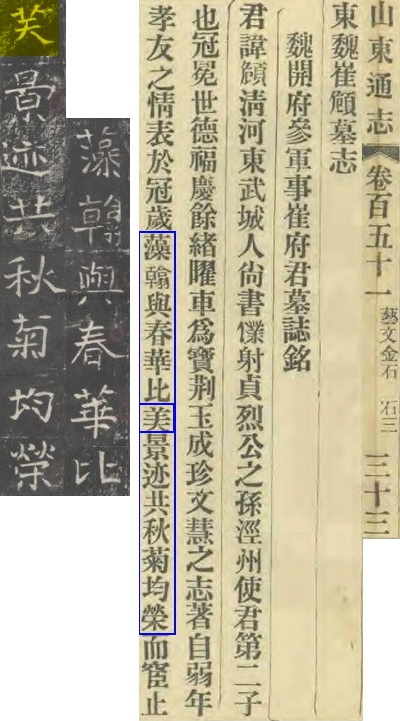 山東通志 卷百五十一 藝文金石 石三 三十三
東魏崔頠墓志
魏開府參軍事崔府君墓誌銘
君諱頠清河東武城人尙書僕射貞烈公之孫涇州使君第二子
也冠冕世德福慶餘緒曜車爲寶荆玉成珍文慧之志著自弱年
孝友之情表於冠歲藻翰與春華比美景迹共秋菊均榮而宦止
藻翰與春華比
芺景迹共秋菊均榮